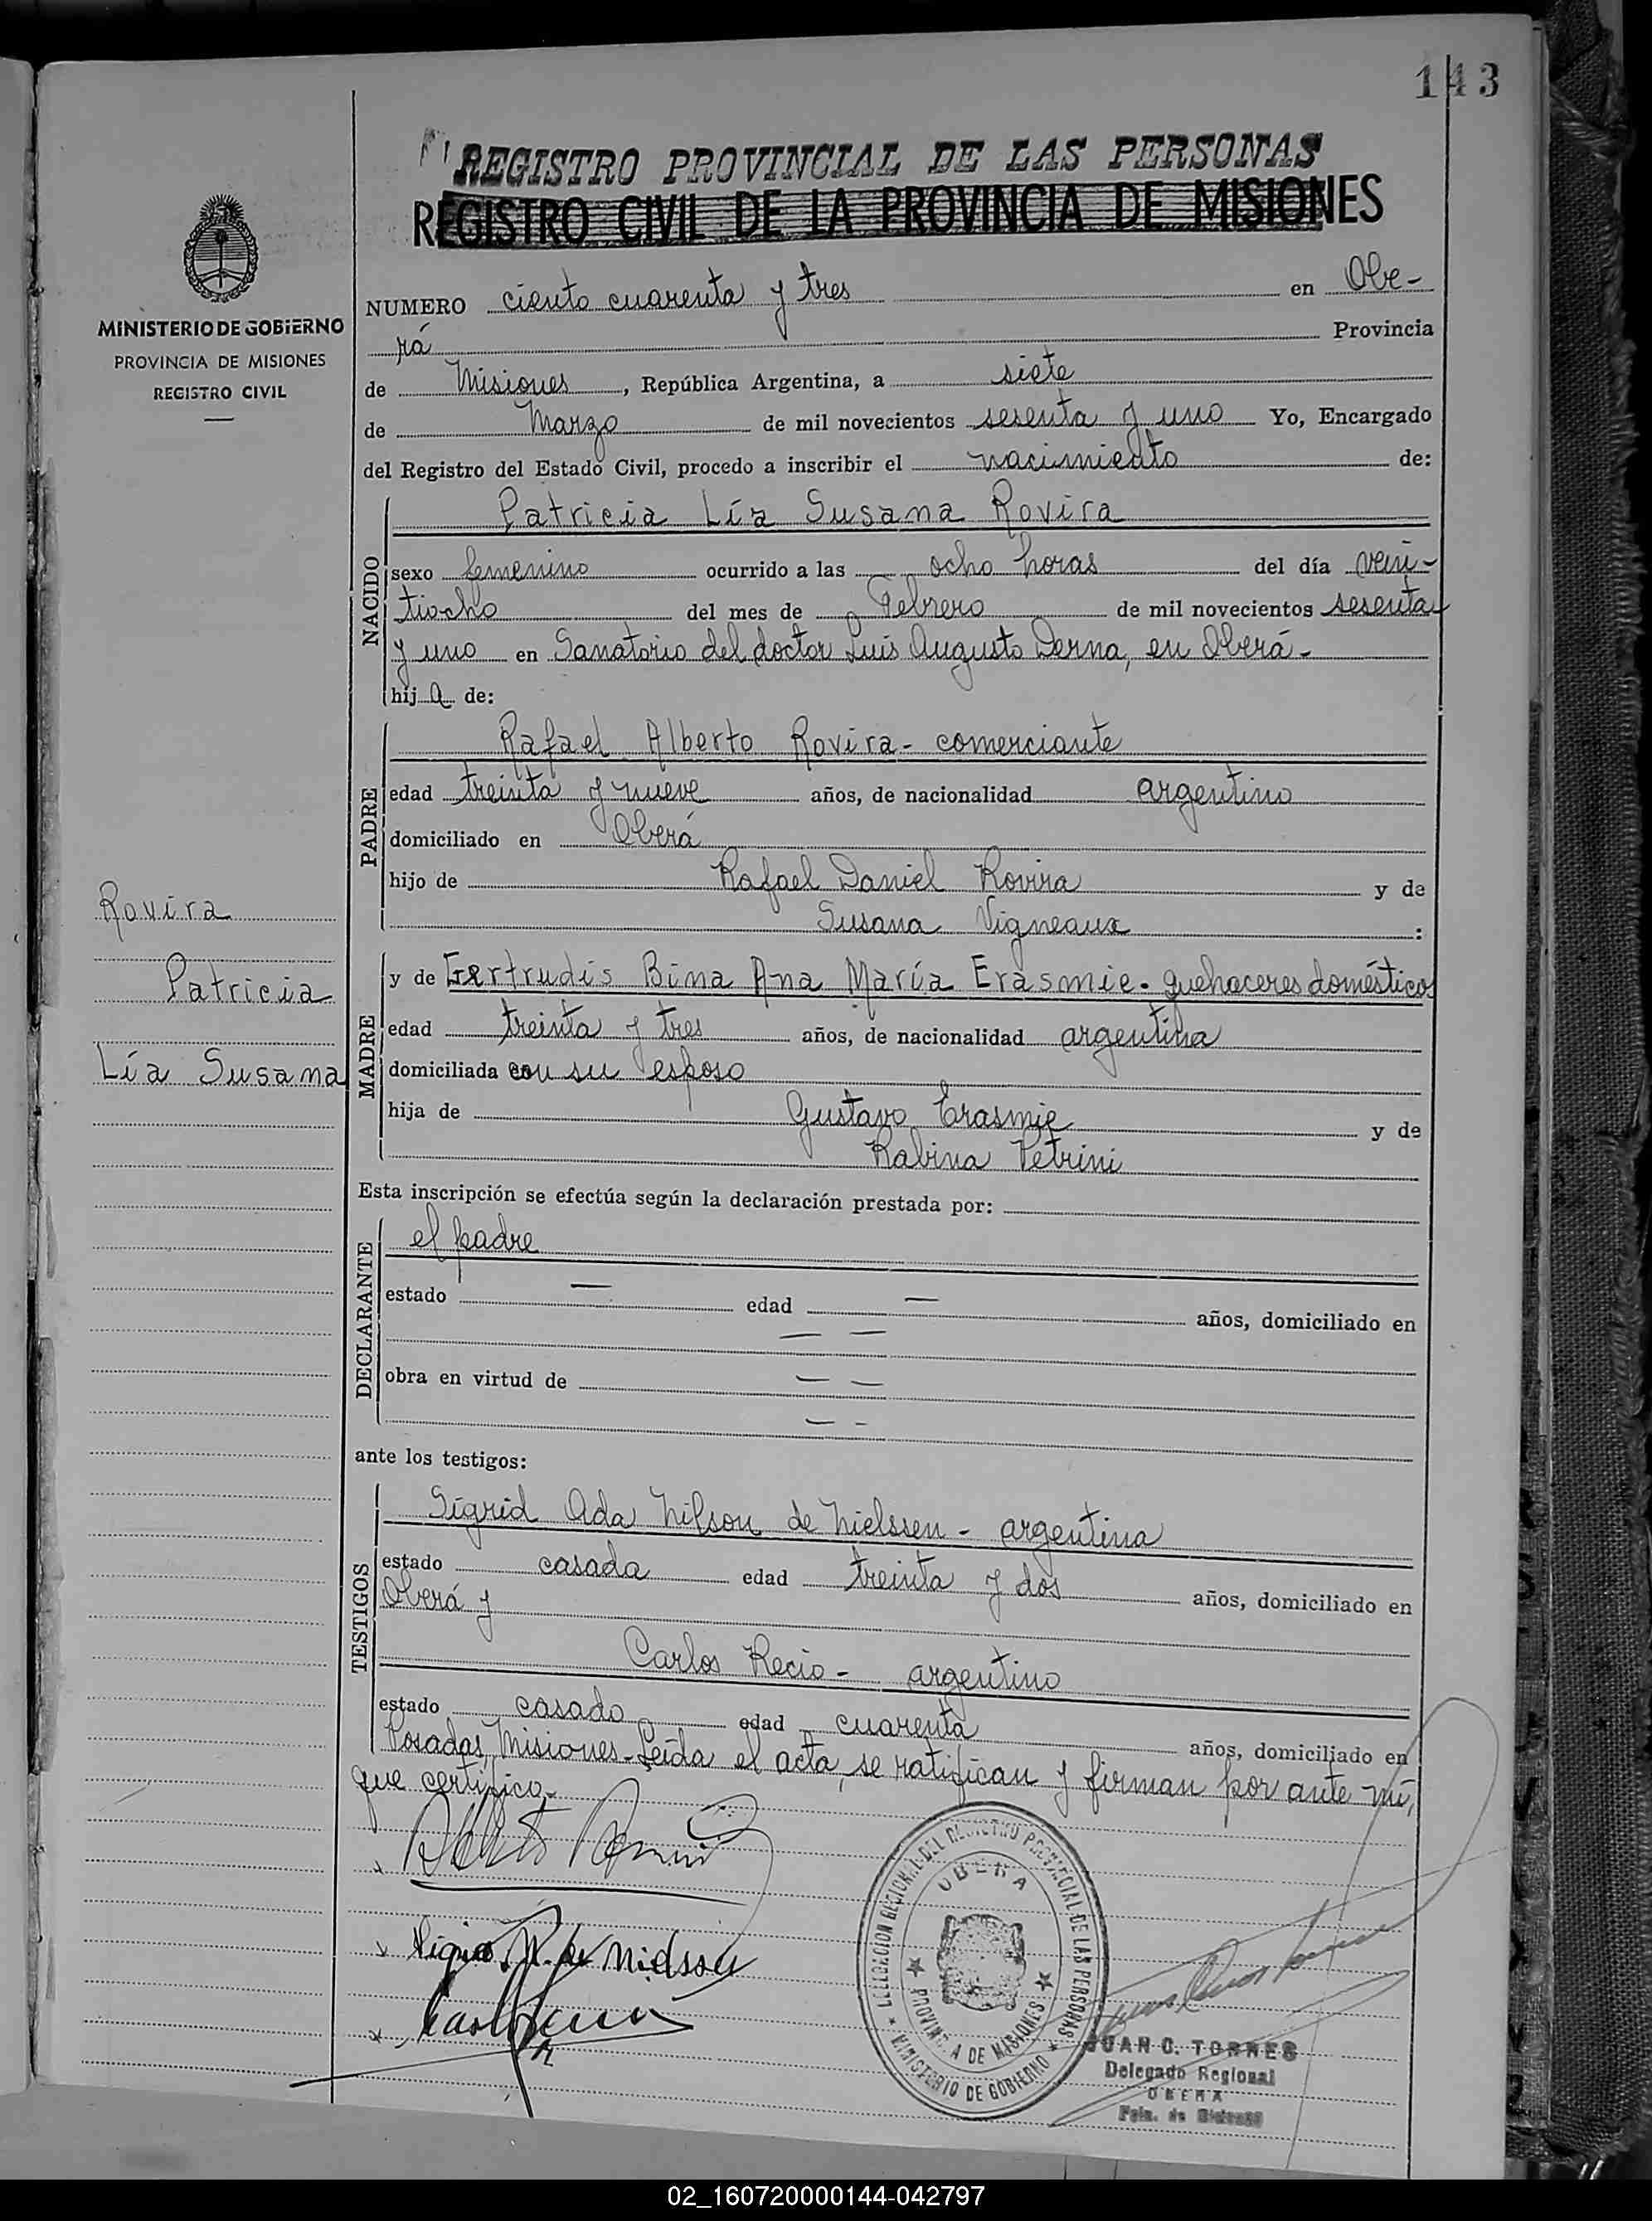 143
REGISTRO PROVINCIAL DE LAS PERSONAS
REGISTRO CIVIL DE LA PROVINCIA DE MISIONES
MINISTERIO DE GOBIERNO
PROVINCIA DE MISIONES
REGISTRO CIVIL
NUMERO ciento cuarenta y tres en Obe-
rá Provincia
de Misiones, República Argentina, a siete
de Marzo de mil novecientos sesenta y uno Yo, Encargado
del Registro del Estado Civil, procedo a inscribir el nacimiento de:
NACIDO
Patricia Lía Susana Rovira
sexo femenino ocurrido a las ocho horas del día vein-
tiocho del mes de Febrero de mil novecientos sesenta
y uno en Sanatorio del doctor Luis Augusto Derna, en Oberá-
hij a de:
PADRE
Rafael Alberto Rovira- comerciante
edad treinta y nueve años, de nacionalidad argentino
domiciliado en Oberá
hijo de Rafael Daniel Rovira y de
Susana Vigneaux :
Rovira
Patricia
Lía Susana
MADRE
y de Gertrudis Bina Ana María Erasmie- quehaceres domésticos
edad treinta y tres años, de nacionalidad argentina
domiciliada con su esposo
hija de Gustavo Erasmie y de
Rabina Petrini
Esta inscripción se efectúa según la declaración prestada por:
DECLARANTE
el padre
estado — edad — años, domiciliado en
— —
obra en virtud de — —
— -
ante los testigos:
TESTIGOS
Sigrid Ada Nilson de Nielssen- argentina
estado casada edad treinta y dos años, domiciliado en
Oberá y
Carlos Recio- argentino
estado casado edad cuarenta años, domiciliado en
Posadas, Misiones-Leída el acta, se ratifican y firman por ante mí,
que certifico.-
DELEGACION REGIONAL DEL REGISTRO PROVINCIAL DE LAS PERSONAS
OBERA
PROVINCIA DE MISIONES
MINISTERIO DE GOBIERNO
JUAN C. TORRES
Delegado Regional
OBERA
Pcia. de Misiones
02_160720000144-042797